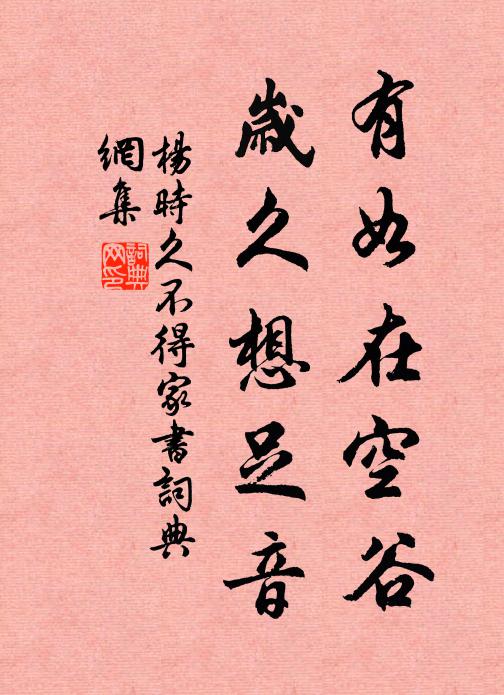 有如在空谷
歲久想足音
楊時久不得家書詞典
網集
詞典
網印